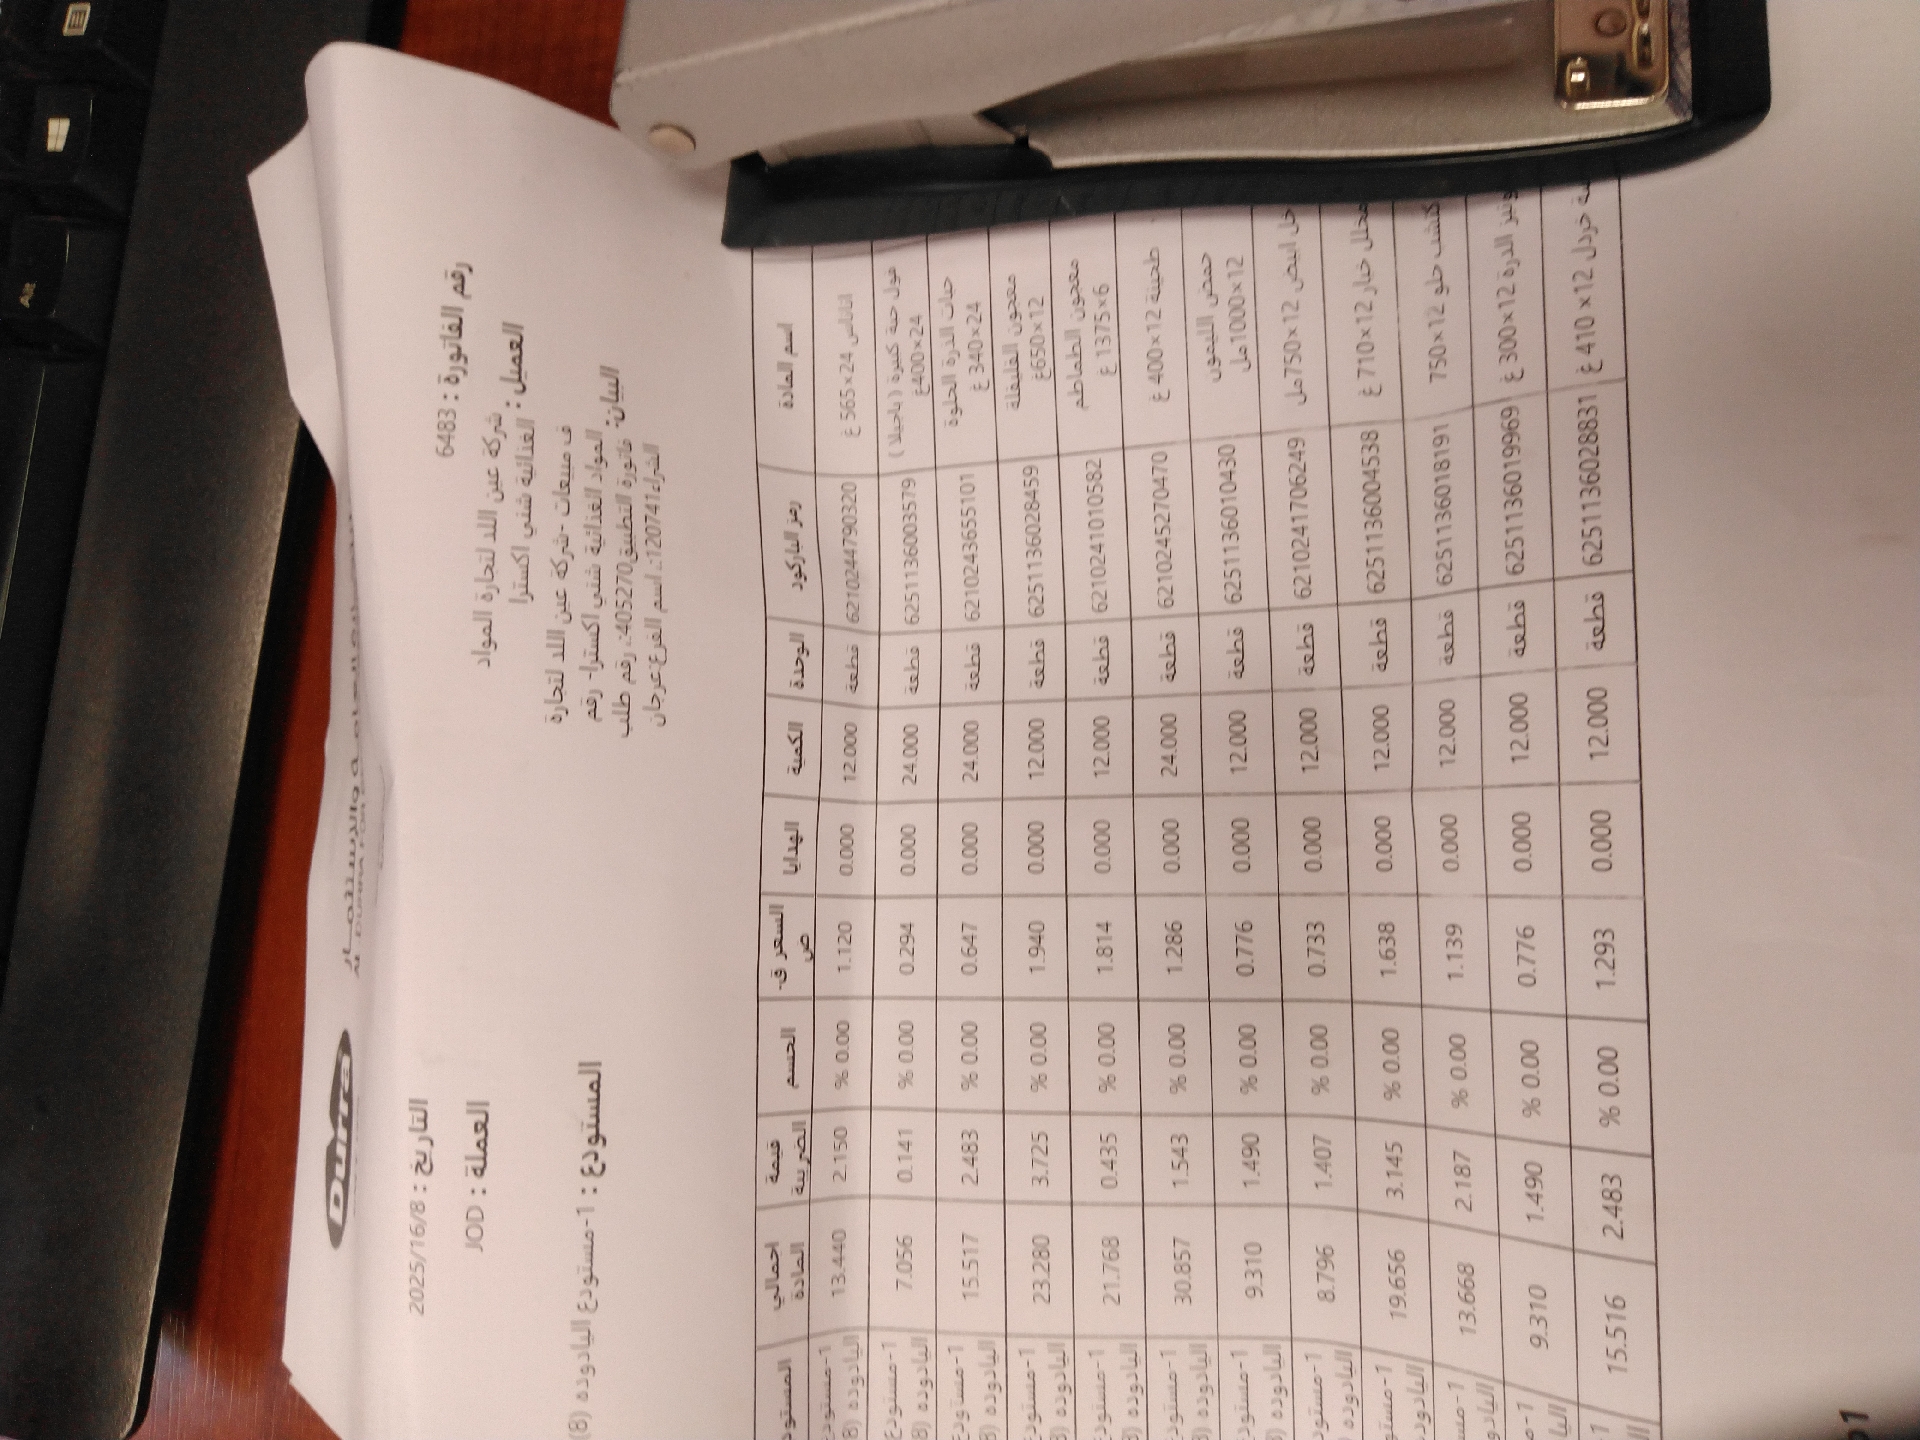 Durra
رقم الفاتورة : 64483
التاريخ : 2025/16/8
العميل : شركة عين اللد لتجارة المواد
الغذائية شتي اكسترا
العملة : JOD
البيان: ف مبيعات -شركة عين اللد لتجارة
المواد الغذائية شتي اكسترا- رقم
فاتورة التطبيق4052700: رقم طلب
الشراء120741: اسم الفرع:عرجان
المستودع : 1-مستودع اليادوده (8)
اسم المادة رمز الباركود الوحدة الكمية الهدايا السعر ق- ص الحسم قيمة الضريبة اجمالي المادة
اناناس 24×565 غ 6210244790320 قطعة 12.000 0.000 1.120 % 0.00 2.150 13.440 1-مستودع
فول حبة كبيرة ( باجيلا ) 24×400غ 6251136003579 قطعة 24.000 0.000 0.294 % 0.00 0.141 7.056 1-مستودع اليادوده
حبات الذرة الحلوة 24×340 غ 6210243655101 قطعة 24.000 0.000 0.647 % 0.00 2.483 15.517 1-مستودع اليادوده
معجون الفليفلة 12×650غ 6251136028459 قطعة 12.000 0.000 1.940 % 0.00 3.725 23.280 اليادوده
معجون الطماطم 6×1375 غ 6210241010582 قطعة 12.000 0.000 1.814 % 0.00 0.435 21.768 اليادوده
طحينة 12×400 غ 6210245270470 قطعة 24.000 0.000 1.286 % 0.00 1.543 30.857 اليادوده
حمض الليمون 12×1000مل 6251136010430 قطعة 12.000 0.000 0.776 % 0.00 1.490 9.310 اليادوده
خل ابيض 12×750مل 6210241706249 قطعة 12.000 0.000 0.733 % 0.00 1.407 8.796 اليادوده
مخلل خيار 12×710 غ 6251136004538 قطعة 12.000 0.000 1.638 % 0.00 3.145 19.656
حلو 12×750 6251136018191 قطعة 12.000 0.000 1.139 % 0.00 2.187 13.668
الدرة 12×300 غ 6251136019969 قطعة 12.000 0.000 0.776 % 0.00 1.490 9.310
خردل 12×410 غ 6251136028831 قطعة 12.000 0.000 1.293 % 0.00 2.483 15.516
Alt